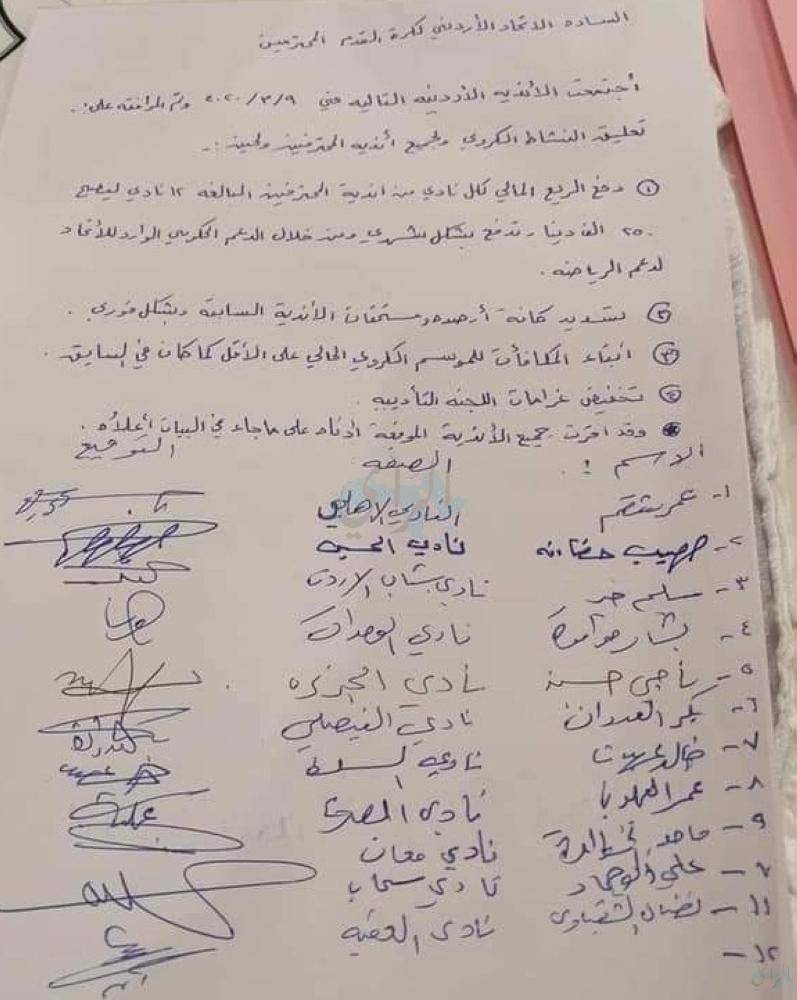 الساده الاتحاد الأردني لكرة القدم المحترمين
أجتمعت الأنديه الأردنيه التاليه في ٢٠٢٠/٣/٩ وتم الموافقه على:.
تعليق النشاط الكروي ولجميع أنديه المحترفين ولحين:-
① دفع الريع المالي لكل نادي من اندية المحترفين البالغه ١٢ نادي ليصبح
٢٥٠ الف دينار تدفع بشكل شهري ومن خلال الدعم الحكومي الوارد للأتحاد
لدعم الرياضه.
② تسديد كافة أرصده ومستحقات الأندية السابقة وبشكل فوري.
③ ابقاء المكافأت للموسم الكروي الحالي على الأقل كما كان في السابق.
④ تخفيض غرامات اللجنه التأديبيه.
وقد اقرت جميع الأندية الموقعة ادناه على ماجاء في البيان أعلاه.
الاسم : الصفه التوقيع
١- عمر النادي الاهلي
٢- صهيب نادي الحسين
٣- سليم خير نادي شباب الاردن
٤- بشار حوامدة نادي الوحدات
٥- ناجي نادي الجزيره
٦- بكر العدوان نادي الفيصلي
٧- خالد عربيات نادي السلط
٨- عمر نادي
٩- ماجد نادي معان
علي نادي سحاب
١١- نضال نادي العقبه
١٢-
الرأي